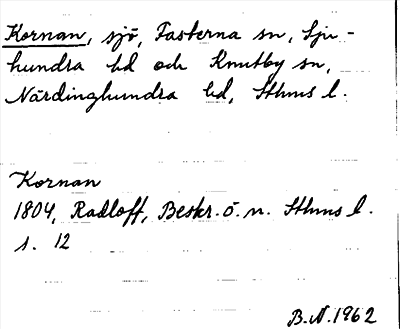 Kornan, sjö, Fasterna sn, Sju-
hundra hd och Knutby sn,
Närdinghundra hd, Sthms l.
Kornan
1804, Radloff, Beskr. ö. n. Sthms l.
s. 12
B.N. 1962